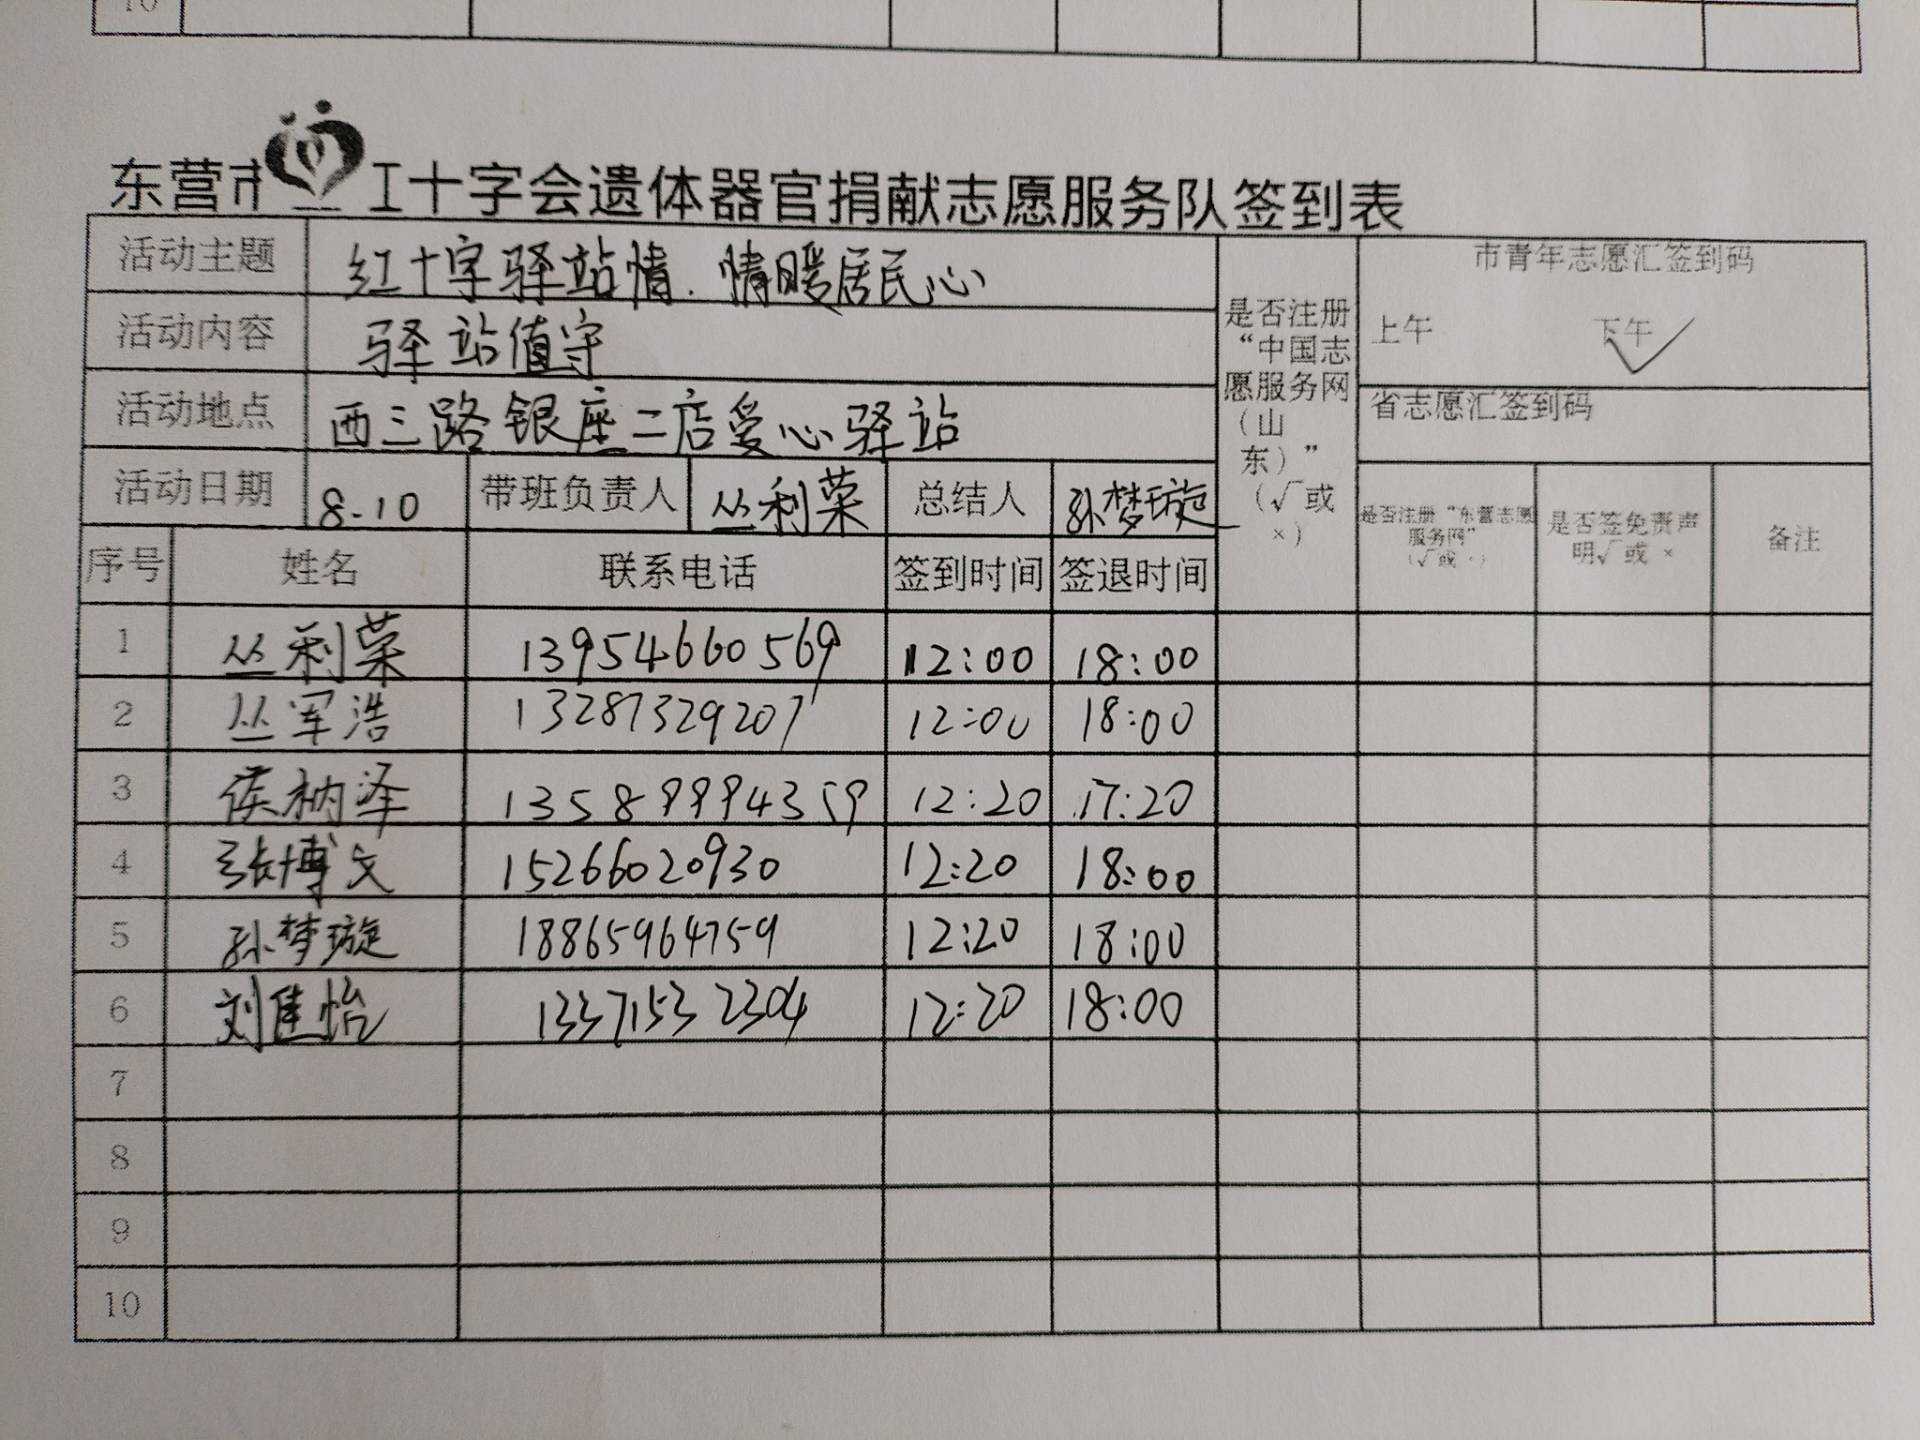 10
东营市红十字会遗体器官捐献志愿服务队签到表
活动主题 红十字驿站情.情暖居民心
活动内容 驿站值守
活动地点 西三路银座二店爱心驿站
活动日期 8.10 带班负责人 丛利荣 总结人 孙梦璇
是否注册
“中国志
愿服务网
(山
东)”
(√或
×)
市青年志愿汇签到码
上午 下午 ✓
省志愿汇签到码
序号 姓名 联系电话 签到时间 签退时间
是否注册“东营志愿
服务网”
(√或 ×)
是否签免责声
明√或 ×
备注
1 丛利荣 13954660569 12:00 18:00
2 丛军浩 13287329207 12:00 18:00
3 侯枘泽 13589994359 12:20 17:20
4 张博文 15266020930 12:20 18:00
5 孙梦璇 18865964759 12:20 18:00
6 刘佳怡 13371532304 12:20 18:00
7
8
9
10